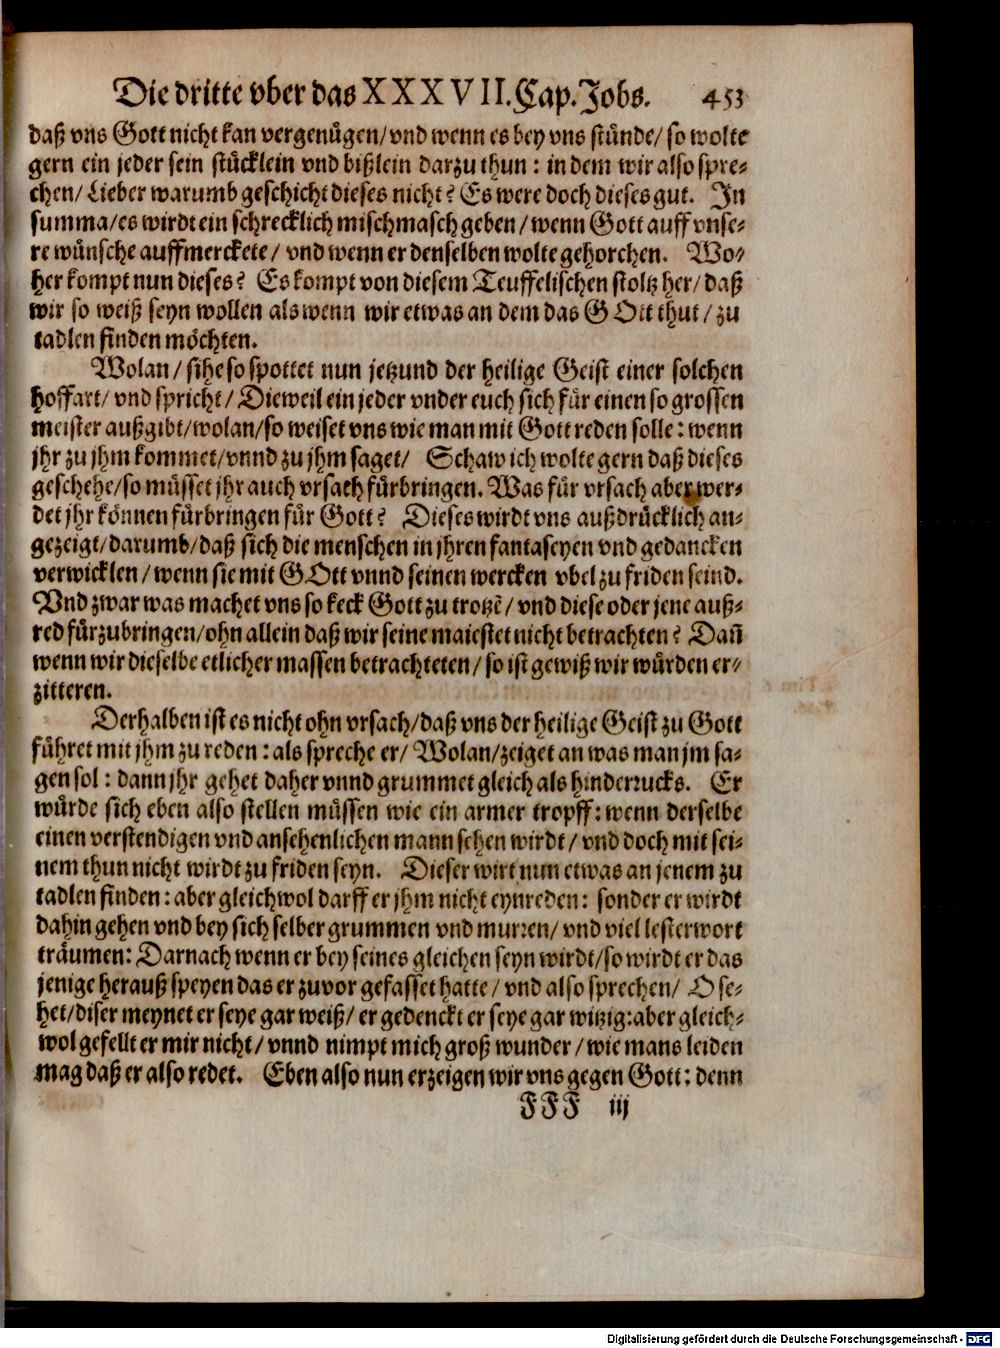 Die dritte vber das XXXVII. Cap. Jobs. 453
daß vns Gott nicht kan vergenügen/ vnd wenn es bey vns stünde/ so wolte
gern ein jeder sein stücklein vnd bißlein darzu thun: in dem wir also spre-
chen/ Lieber warumb geschicht dieses nicht? Es were doch dieses gut. In
summa/ es wirdt ein schrecklich mischmasch geben/ wenn Gott auff vnse-
re wünsche auffmerckete/ vnd wenn er denselben wolte gehorchen. Wo-
her kompt nun dieses? Es kompt von diesem Teuffelischen stoltz her/ daß
wir so weiß seyn wollen als wenn wir etwas an dem das GOtt thut/ zu
tadlen finden möchten.
Wolan/ sihe so spottet nun jetzund der heilige Geist einer solchen
hoffart/ vnd spricht/ Dieweil ein jeder vnder euch sich für einen so grossen
meister außgibt/ wolan/ so weiset vns wie man mit Gott reden solle: wenn
jhr zu jhm kommet/ vnnd zu jhm saget/ Schaw ich wolte gern daß dieses
geschehe/ so müsset jhr auch vrsach fürbringen. Was für vrsach aber wer-
det jhr können fürbringen für Gott? Dieses wirdt vns außdrücklich an-
gezeigt/ darumb/ daß sich die menschen in jhren fantaseyen vnd gedancken
verwicklen/ wenn sie mit GOtt vnnd seinen wercken vbel zu friden seind.
Vnd zwar was machet vns so keck Gott zu trotzē/ vnd diese oder jene auß-
red fürzubringen/ ohn allein daß wir seine maiestet nicht betrachten? Dañ
wenn wir dieselbe etlicher massen betrachteten/ so ist gewiß wir würden er-
zitteren.
Derhalben ist es nicht ohn vrsach/ daß vns der heilige Geist zu Gott
führet mit jhm zu reden: als spreche er/ Wolan/ zeiget an was man jm sa-
gen sol: dann jhr gehet daher vnnd grummet gleich als hinderrucks. Er
würde sich eben also stellen müssen wie ein armer tropff: wenn derselbe
einen verstendigen vnd ansehenlichen mann sehen wirdt/ vnd doch mit sei-
nem thun nicht wirdt zu friden seyn. Dieser wirt nun etwas an jenem zu
tadlen finden: aber gleichwol darff er jhm nicht eynreden: sonder er wirdt
dahin gehen vnd bey sich selber grummen vnd murren/ vnd viel lesterwort
träumen: Darnach wenn er bey seines gleichen seyn wirdt/ so wirdt er das
jenige herauß speyen das er zuvor gefasset hatte/ vnd also sprechen/ O se-
het/ diser meynet er seye gar weiß/ er gedenckt er seye gar witzig: aber gleich-
wol gefellt er mir nicht/ vnnd nimpt mich groß wunder/ wie mans leiden
mag daß er also redet. Eben also nun erzeigen wir vns gegen Gott: denn
FFF iij
Digitalisierung gefördert durch die Deutsche Forschungsgemeinschaft - DFG